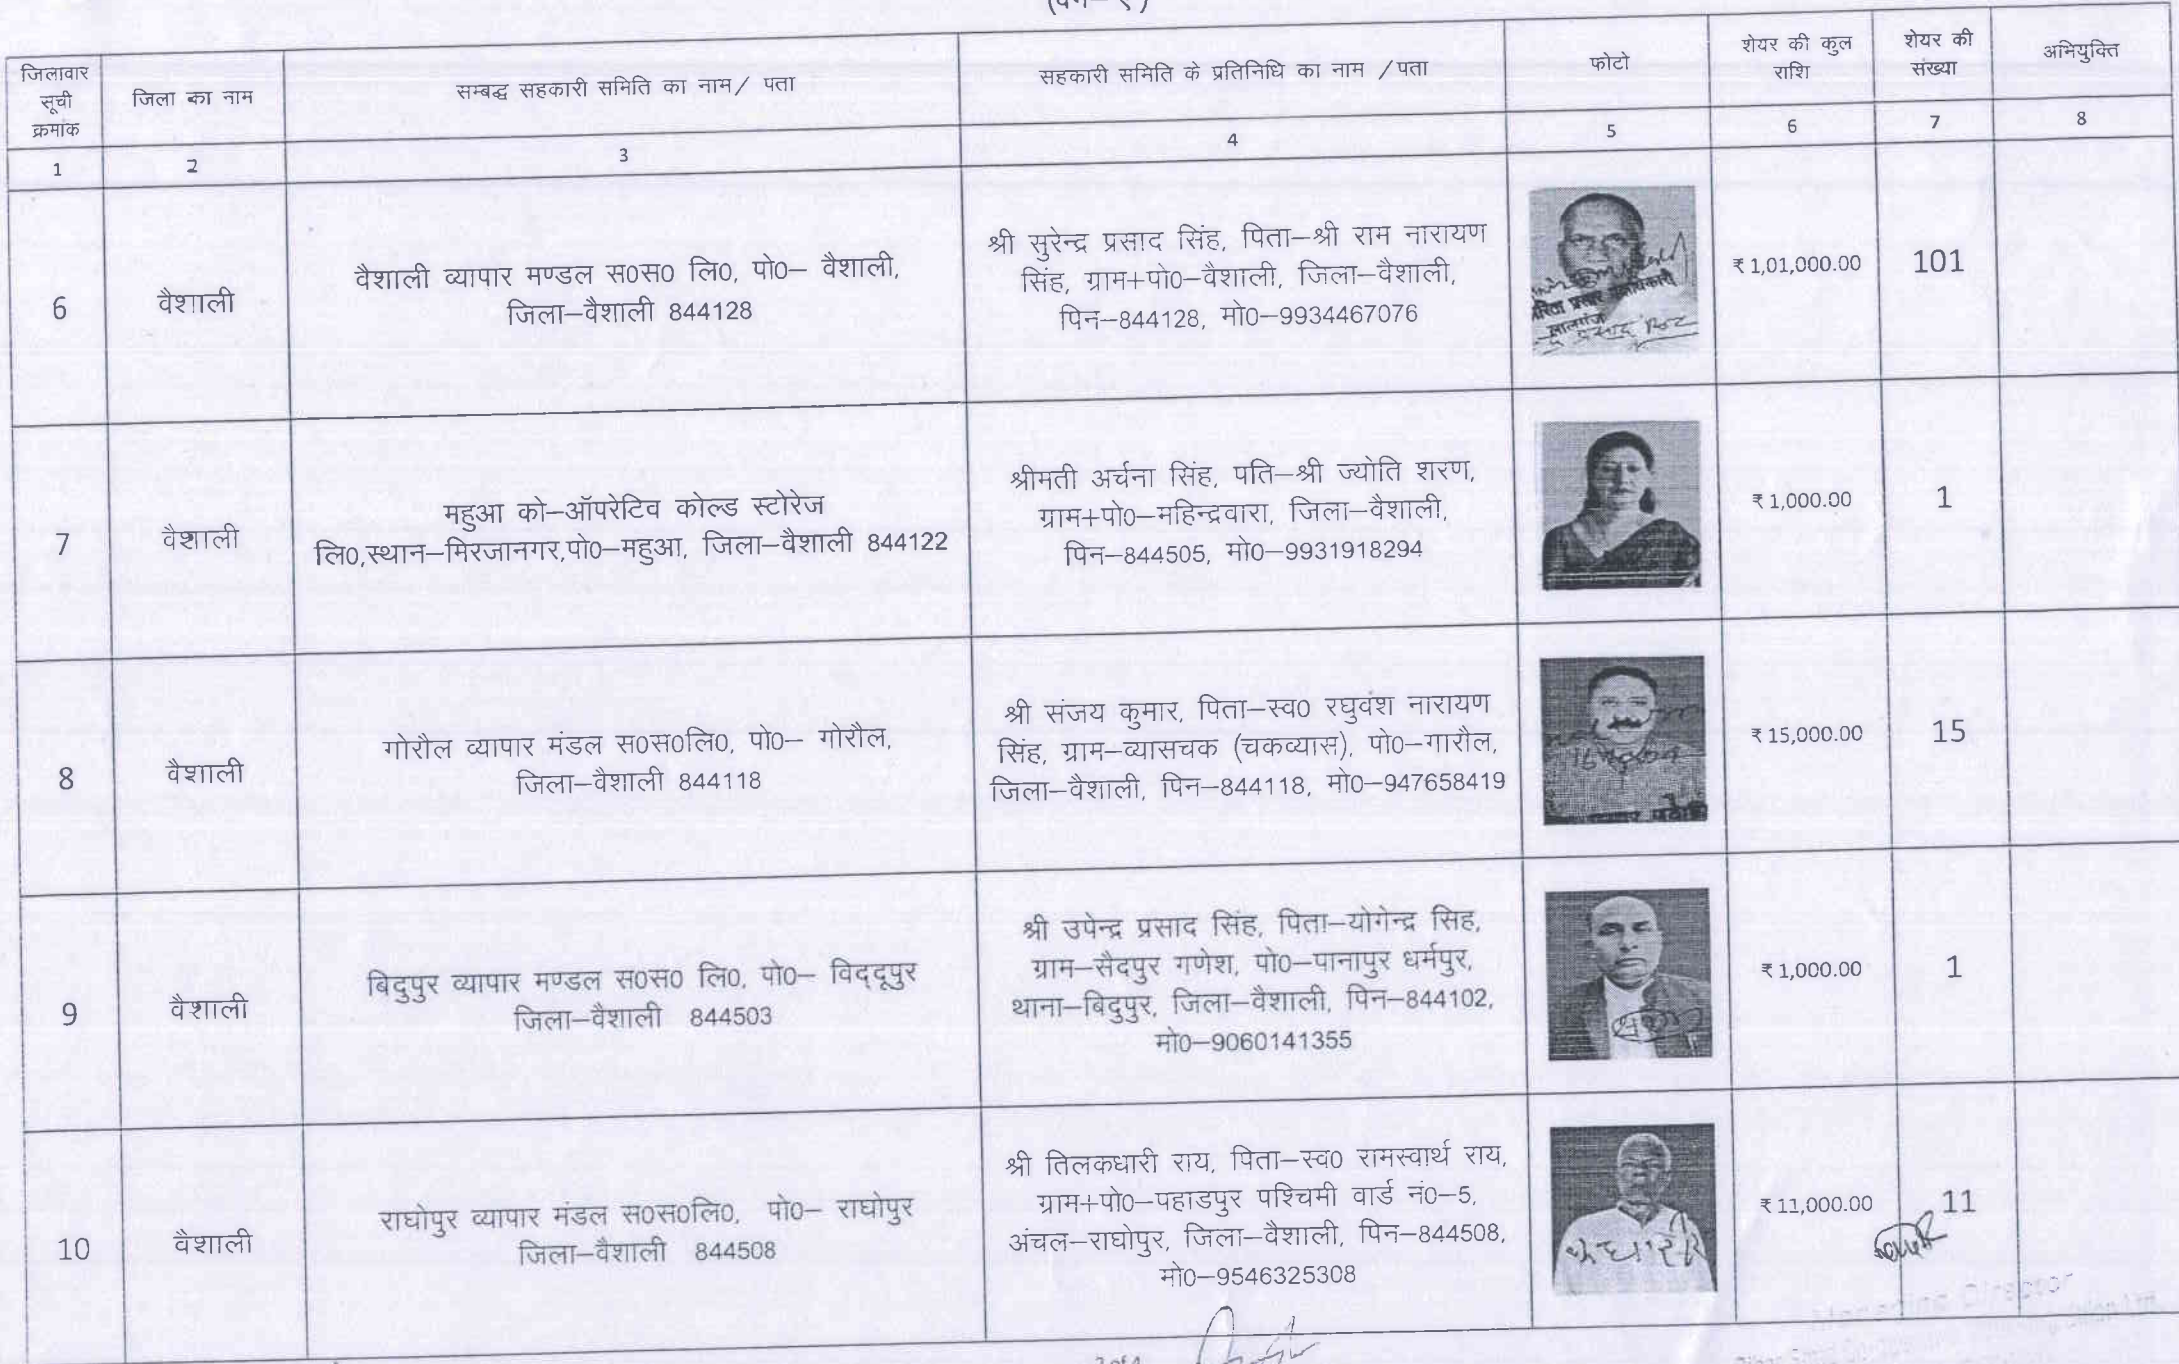 जिलावार
सूची
क्रमांक
जिला का नाम
सम्बद्ध सहकारी समिति का नाम/ पता
सहकारी समिति के प्रतिनिधि का नाम /पता
फोटो
शेयर की कुल
राशि
शेयर की
संख्या
अभियुक्ति
1 2 3 4 5 6 7 8
6
वैशाली
वैशाली व्यापार मण्डल स0स0 लि0, पो0– वैशाली,
जिला–वैशाली 844128
श्री सुरेन्द्र प्रसाद सिंह, पिता–श्री राम नारायण
सिंह, ग्राम+पो0–वैशाली, जिला–वैशाली,
पिन–844128, मो0–9934467076
₹ 1,01,000.00
101
7
वैशाली
महुआ को–ऑपरेटिव कोल्ड स्टोरेज
लि0,स्थान–मिरजानगर,पो0–महुआ, जिला–वैशाली 844122
श्रीमती अर्चना सिंह, पति–श्री ज्योति शरण,
ग्राम+पो0–महिन्द्रवारा, जिला–वैशाली,
पिन–844505, मो0–9931918294
₹ 1,000.00
1
8
वैशाली
गोरौल व्यापार मंडल स0स0लि0, पो0– गोरौल,
जिला–वैशाली 844118
श्री संजय कुमार, पिता–स्व0 रघुवंश नारायण
सिंह, ग्राम–व्यासचक (चकव्यास), पो0–गारौल,
जिला–वैशाली, पिन–844118, मो0–947658419
₹ 15,000.00
15
9
वैशाली
बिदुपुर व्यापार मण्डल स0स0 लि0, पो0– विद्दूपुर
जिला–वैशाली 844503
श्री उपेन्द्र प्रसाद सिंह, पिता–योगेन्द्र सिह,
ग्राम–सैदपुर गणेश, पो0–पानापुर धर्मपुर,
थाना–बिदुपुर, जिला–वैशाली, पिन–844102,
मो0–9060141355
₹ 1,000.00
1
10
वैशाली
राघोपुर व्यापार मंडल स0स0लि0, पो0– राघोपुर
जिला–वैशाली 844508
श्री तिलकधारी राय, पिता–स्व0 रामस्वार्थ राय,
ग्राम+पो0–पहाडपुर पश्चिमी वार्ड नं0–5,
अंचल–राघोपुर, जिला–वैशाली, पिन–844508,
मो0–9546325308
₹ 11,000.00
11